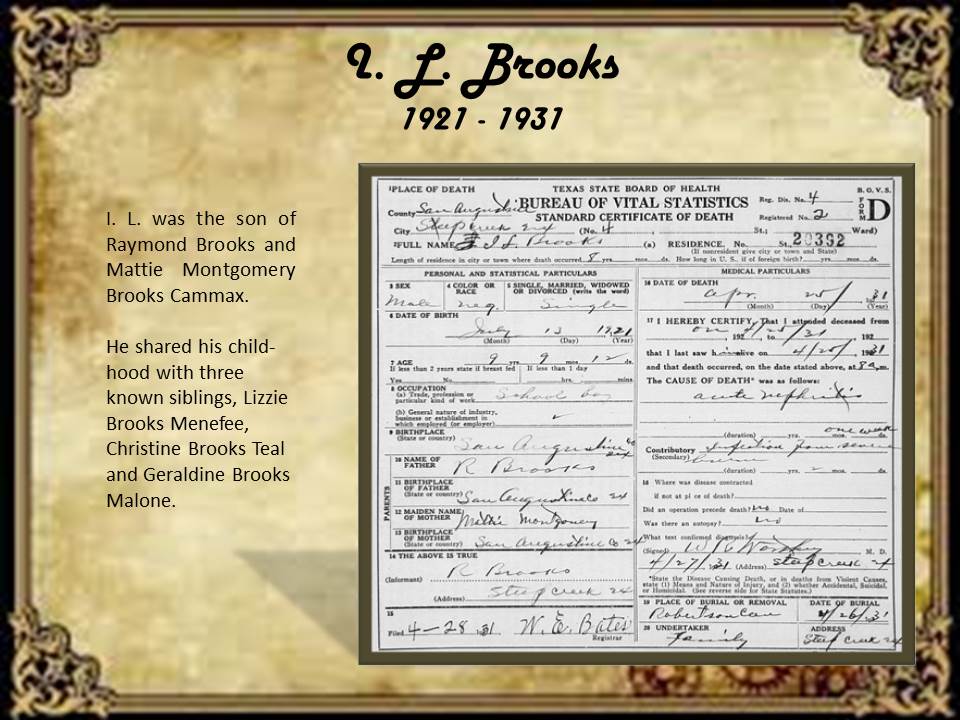 I. L. Brooks
1921 - 1931
I. L. was the son of
Raymond Brooks and
Mattie Montgomery
Brooks Cammax.
He shared his child-
hood with three
known siblings, Lizzie
Brooks Menefee,
Christine Brooks Teal
and Geraldine Brooks
Malone.
1 PLACE OF DEATH
TEXAS STATE BOARD OF HEALTH
B. O. V. S.
FORM D
County San Augustine
BUREAU OF VITAL STATISTICS
Reg. Dis. No. 4
STANDARD CERTIFICATE OF DEATH
Registered No. 2
City Steep Creek (No. 4 St.; Ward)
2 FULL NAME I L Brooks (a) RESIDENCE. No. St. 20392
(If nonresident give city or town and State)
Length of residence in city or town where death occurred 8 yrs. mos. ds. How long in U. S., if of foreign birth? yrs. mos. ds.
PERSONAL AND STATISTICAL PARTICULARS
3 SEX
Male
4 COLOR OR RACE
neg.
5 SINGLE, MARRIED, WIDOWED OR DIVORCED (write the word)
Single
6 DATE OF BIRTH
July 13 1921
(Month) (Day) (Year)
7 AGE 9 yrs. 9 mos. 12 ds.
If less than 2 years state if breast fed
If less than 1 day
Yes No hrs. mins.
8 OCCUPATION
(a) Trade, profession or
particular kind of work School boy
(b) General nature of industry,
business or establishment in
which employed (or employer)
9 BIRTHPLACE
(State or country) San Augustine Co
10 NAME OF
FATHER R Brooks
PARENTS
11 BIRTHPLACE
OF FATHER
(State or country) San Augustine Co
12 MAIDEN NAME
OF MOTHER Mattie Montgomery
13 BIRTHPLACE
OF MOTHER
(State or country) San Augustine Co
14 THE ABOVE IS TRUE
(Informant) R Brooks
(Address) Steep Creek
15
Filed 4-28 31 W. E. Bates
Registrar
MEDICAL PARTICULARS
16 DATE OF DEATH
Apr. 25 31
(Month) (Day) (Year)
17 I HEREBY CERTIFY, That I attended deceased from
on 4/25/31, 192 , to , 192
that I last saw h alive on 4/25/, 1931
and that death occurred, on the date stated above, at 8 a.m.
The CAUSE OF DEATH* was as follows:
acute nephritis
one week
(duration) yrs. mos. ds.
Contributory Infection from severe
(Secondary)
(duration) yrs. mos. ds.
18 Where was disease contracted
if not at pl ce of death?
Did an operation precede death? no Date of
Was there an autopsy? no
What test confirmed diagnosis?
(Signed) M. D.
4/27/31 (Address) Steep Creek
*State the Disease Causing Death, or in deaths from Violent Causes,
state (1) Means and Nature of Injury, and (2) whether Accidental, Suicidal,
or Homicidal. (See reverse side for State Statutes.)
19 PLACE OF BURIAL OR REMOVAL
Robertson
DATE OF BURIAL
4/26/31
20 UNDERTAKER
Family
ADDRESS
Steep Creek